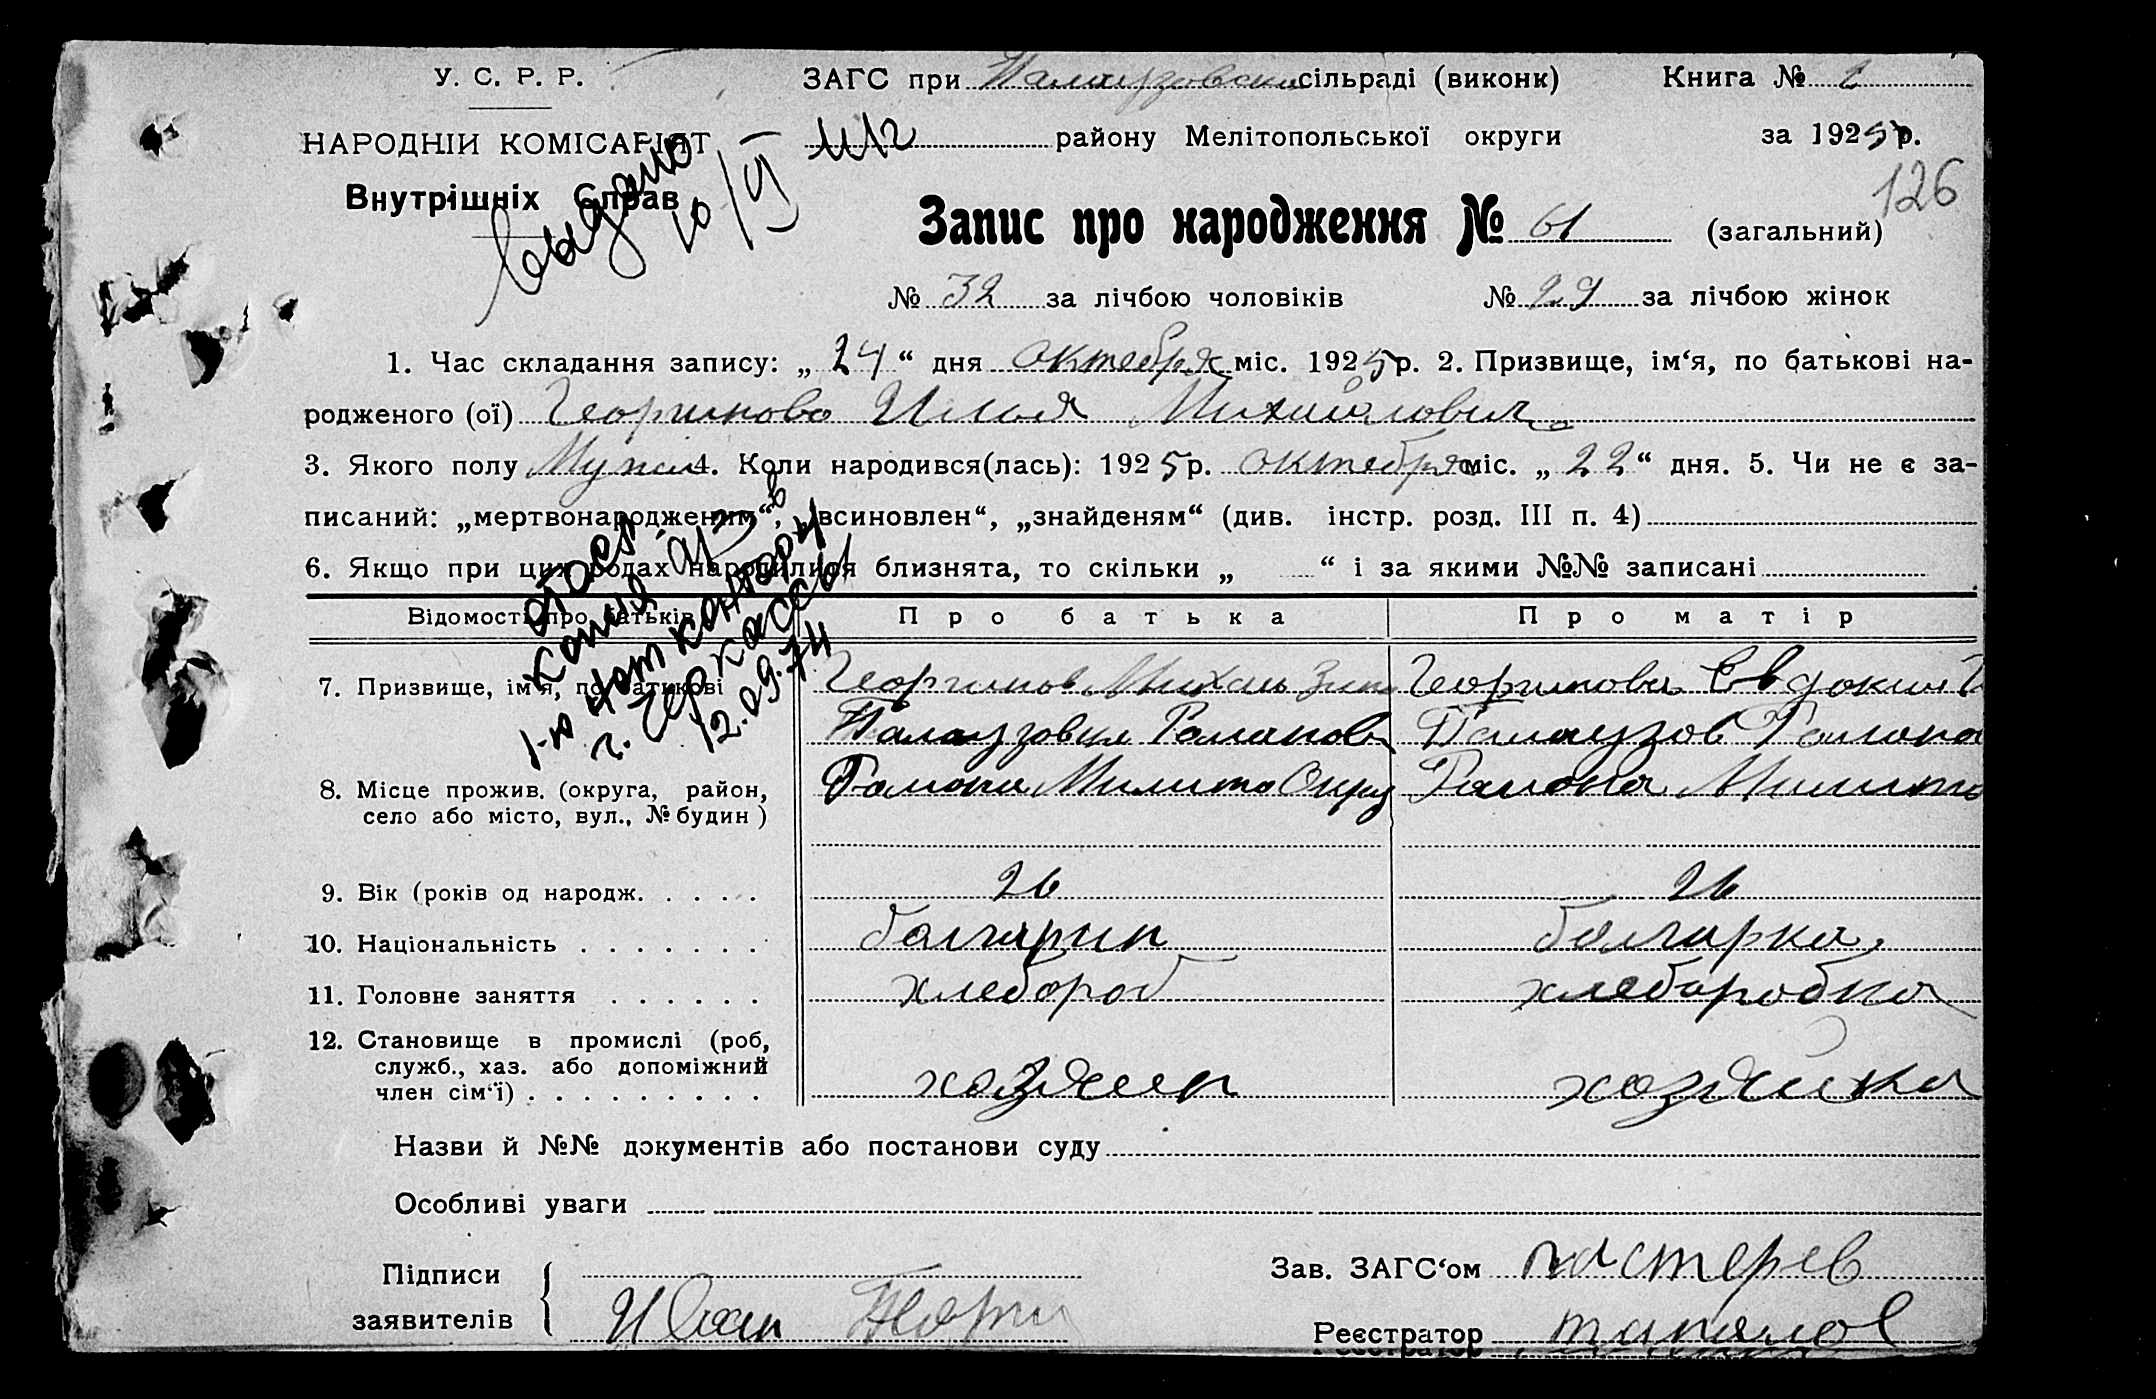 У. С. Р. Р.
ЗАГС при Палаузовском сільраді (виконк) Книга № 2
НАРОДНІЙ КОМІСАРІЯТ
району Мелітопольської округи за 1925 р.
Внутрішніх Справ
выдано
10/VI
126
Запис про народження № 61 (загальний)
№ 32 за лічбою чоловіків № 29 за лічбою жінок
1. Час складання запису: „ 24 “ дня Октебря міс. 1925 р. 2. Призвище, ім‘я, по батькові на-
родженого (ої) Илья Михайлович
3. Якого полу Мужск 4. Коли народився(лась): 1925 р. октебря міс. „ 22 “ дня. 5. Чи не є за-
писаний: „мертвонародженим“, „всиновлен“, „знайденям“ (див. інстр. розд. III п. 4)
6. Якщо при цих родах народилися близнята, то скільки „ “ і за якими №№ записані
Відомості про батьків Про батька Про матір
копия
1-ю нот контору
г. Черкассы
12.09.74
7. Призвище, ім‘я, по батькові Михаил Евдокия
Палаузовка Романов Палаузов Рамона
8. Місце прожив. (округа, район, Рамона Милито Окру Рамона Милито
село або місто, вул., № будин )
9. Вік (років од народж. . . . . 26 26
10. Національність . . . . . . . болгарин болгарка
11. Головне заняття . . . . . . хлебороб хлеборобка
12. Становище в промислі (роб,
служб., хаз. або допоміжний
член сім‘ї) . . . . . . . . . хозяин хозяйка
Назви й №№ документів або постанови суду
Особливі уваги
Підписи Зав. ЗАГС‘ом пастерев
заявителів Иван
Реєстратор тапалов